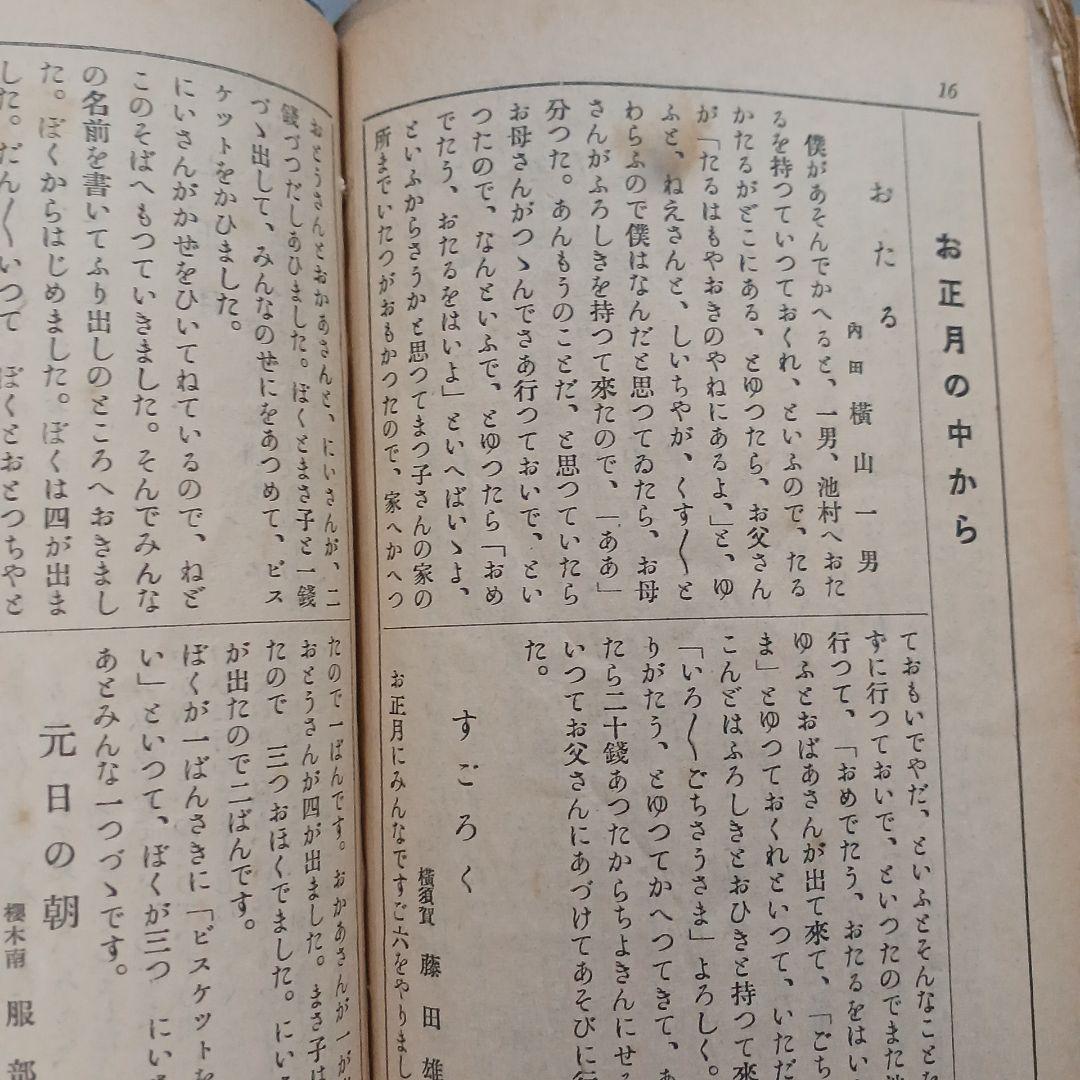 16
お正月の中から
おたる
內田 橫山一男
僕があそんでかへると、一男、池村へおた
るを持つていつておくれ、といふので、たる
かたるがどこにある、とゆつたら、お父さん
が「たるはもやおきのやねにあるよ、」と、ゆ
ふと、ねえさんと、しいちやが、くす〱と
わらふので僕はなんだと思つてゐたら、お母
さんがふろしきを持つて來たので、「ああ」
分つた。あんもうのことだ、と思つていたら
お母さんがつゝんでさあ行つておいで、とい
つたので、なんといふで、とゆつたら「おめ
でたう、おたるをはいよ」といへばいゝよ、
といふからさうかと思つてまつ子さんの家の
所までいたつがおもかつたので、家へかへつ
ておもいでやだ、といふとそんなことを
ずに行つておいで、といつたのでまた
行つて、「おめでたう、おたるをはい
ゆふとおばあさんが出て來て、「ごち
ま」とゆつておくれといつて、いただ
こんどはふろしきとおひきと持つて來
「いろ〱ごちさうさま」よろしく。
りがたう、とゆつてかへつてきて、あ
たら二十錢あつたからちよきんにせ
いつてお父さんにあづけてあそびに行
た。
すごろく
橫須賀 藤田雄
お正月にみんなですご六をやりまし
おとうさんとおかあさんと、にいさんが、二
錢づつだしあひました。ぼくとまさ子と一錢
づゝ出して、みんなのせにをあつめて、ビス
ケットをかひました。
にいさんがかぜをひいてねているので、ねど
このそばへもつていきました。そんでみんな
の名前を書いてふり出しのところへおきまし
た。ぼくからはじめました。ぼくは四が出ま
した。だん〱いつて ぼくとおとつちやと
たので一ばんです。おかあさんが一が
おとうさんが四が出ました。まさ子は
たので 三つおほくでました。にい
が出たので二ばんです。
ぼくが一ばんさきに「ビスケットを
い」といつて、ぼくが三つ にい
あとみんな一つづゝです。
元日の朝
櫻木南 服部